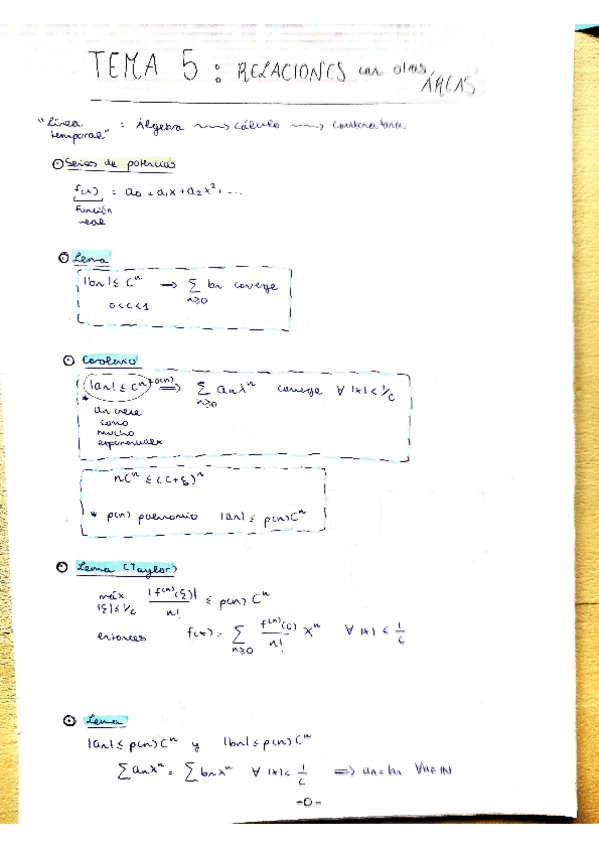 TEMA 5: RELACIONES con otras ÁREAS
"Línea temporal" : Álgebra ⟿ cálculo ⟿ combinatoria
⊙ Series de potencias
f(x) = a₀ + a₁x + a₂x² + ...
función
real
⊙ Lema
|bn| ≤ Cⁿ → ∑ bn converge
n≥0
0<C<1
⊙ Corolario
|an| ≤ Cⁿ⁺ᵒ⁽ⁿ⁾ ⟹ ∑ anxⁿ converge ∀ |x| < 1/C
n≥0
* an crece
como
mucho
exponencial
nCⁿ ≤ (C+ξ)ⁿ
* p(n) polinomio |an| ≤ p(n)Cⁿ
⊙ Lema (Taylor)
máx |f⁽ⁿ⁾(ξ)| / n! ≤ p(n) Cⁿ
|ξ|≤1/C
entonces f(x) = ∑ f⁽ⁿ⁾(C) / n! xⁿ ∀ |x| < 1/C
n≥0
⊙ Lema
|an| ≤ p(n)Cⁿ y |bn| ≤ p(n)Cⁿ
∑ anxⁿ = ∑ bnxⁿ ∀ |x| < 1/C ⟹ an = bn ∀n∈ℕ
-0-